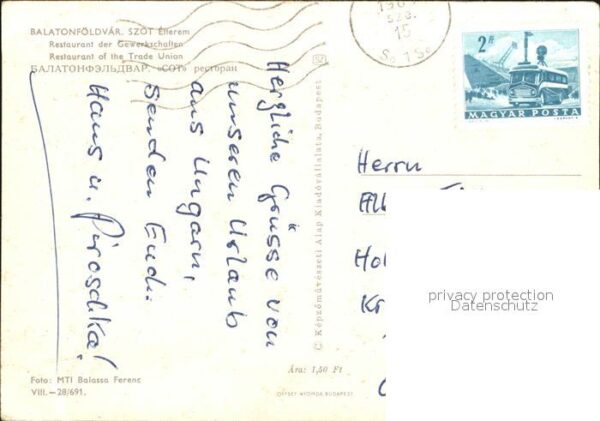 BALATONFÖLDVÁR. SZOT Étterem
Restaurant der Gewerkschaften
Restaurant of the Trade Union
БАЛАТОНФЭЛЬДВАР. «СОТ» ресторан
Herzliche Grüsse von
unseren Urlaub
aus Ungarn,
senden Euch
Hans u. Piroschka!
Foto: MTI Balassa Ferenc
VIII.—28/691.
© Képzőművészeti Alap Kiadóvállalata, Budapest
Ára: 1,50 Ft
OFFSET-NYOMDA, BUDAPEST
15
2 Ft
MAGYAR POSTA
Herrn
privacy protection
Datenschutz